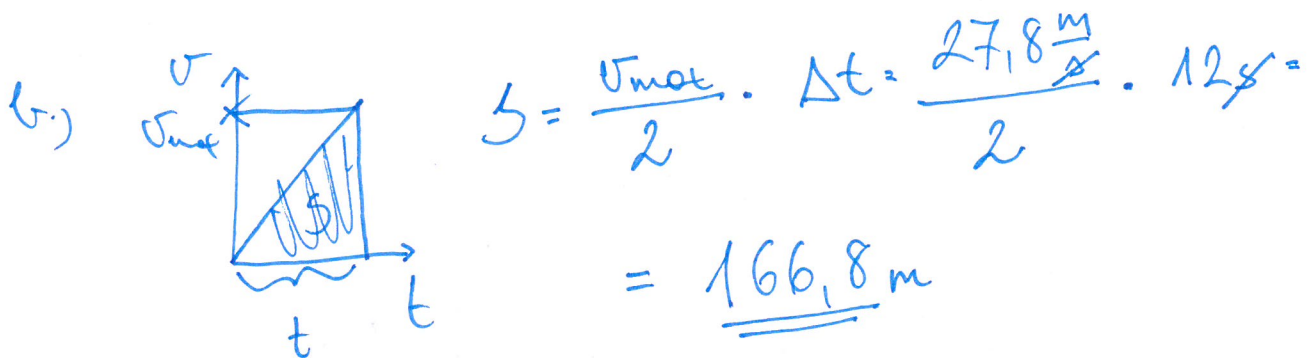 b.) v
v_max
S
t
t
S = v_max/2 · Δt = 27,8 m/s / 2 · 12 s =
= 166,8 m